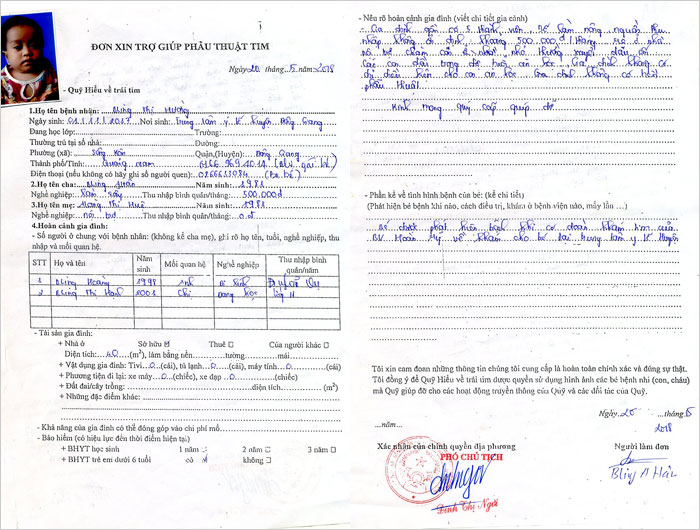 ĐƠN XIN TRỢ GIÚP PHẪU THUẬT TIM
Ngày 20 tháng 5 năm 2018
- Quỹ Hiểu về trái tim
1.Họ tên bệnh nhân: Bling Thị Hương
Ngày sinh: 01.1.1.1.2017 Nơi sinh: Trung tâm y tế huyện Đông Giang
Đang học lớp: Trường:
Thường trú tại số nhà: Đường:
Phường (xã): Sông Kôn Quận,(Huyện): Đông Giang
Thành phố/Tỉnh: Quảng nam
Điện thoại (nếu không có hãy ghi số người quen):
2.Họ tên cha: Bling Năm sinh: 1981
Nghề nghiệp: Thu nhập bình quân/tháng: 500.000đ
3.Họ tên mẹ: Thị Huê Năm sinh: 1981
Nghề nghiệp: nội trợ Thu nhập bình quân/tháng: 0 đ
4.Hoàn cảnh gia đình:
- Số người ở chung với bệnh nhân: (không kể cha mẹ), ghi rõ họ tên, tuổi, nghề nghiệp, thu
nhập và mối quan hệ.
STT Họ và tên Năm sinh Mối quan hệ Nghề nghiệp Thu nhập bình quân/năm
1 Bling Hoàng 1998 anh
2 Bling Thị Hạnh 2001 Chị Đang học lớp 11
- Tài sản gia đình:
+ Nhà ở Sở hữu Thuê Của người khác
Diện tích: 40 (m²), làm bằng nền tường mái
+ Vật dụng gia đình: Tivi 0 (cái), tủ lạnh (cái), máy tính 0 (cái)
+ Phương tiện đi lại: xe máy 0 (chiếc), xe đạp 0 (chiếc)
+ Đất đai/cây trồng: diện tích (m²)
+ Những đặc điểm khác:
- Khả năng của gia đình có thể đóng góp vào chi phí mổ
- Bảo hiểm (có hiệu lực đến thời điểm hiện tại)
+ BHYT học sinh 1 năm 2 năm 3 năm
+ BHYT trẻ em dưới 6 tuổi có không
- Nêu rõ hoàn cảnh gia đình (viết chi tiết gia cảnh)
Gia đình gồm có 5 thành viên, bố làm nông nguồn thu
nhập không ổn định, khoảng 500.000đ/tháng mẹ ở nhà
Các con đang trong độ tuổi ăn học. Gia đình không có
đủ điều kiện cho con ăn học. Gia đình không có
phẫu thuật
Kính mong quý cấp giúp đỡ
- Phần kể về tình hình bệnh của bé: (kể chi tiết)
(Phát hiện bệnh khi nào, cách điều trị, khám ở bệnh viện nào, mấy lần …)
Bé được phát hiện bệnh khi có đoàn khám tim của
BV Hoàn Mỹ về khám cho bé tại trung tâm y tế huyện
Tôi xin cam đoan những thông tin chúng tôi cung cấp là hoàn toàn chính xác và đúng sự thật.
Tôi đồng ý để Quỹ Hiểu về trái tim được quyền sử dụng hình ảnh các bé bệnh nhi (con, cháu)
mà Quỹ giúp đỡ cho các hoạt động truyền thông của Quỹ và các đối tác của Quỹ.
Ngày 20 tháng 5
năm 2018
Xác nhận của chính quyền địa phương Người làm đơn
PHÓ CHỦ TỊCH
Đinh Thị Ngơi